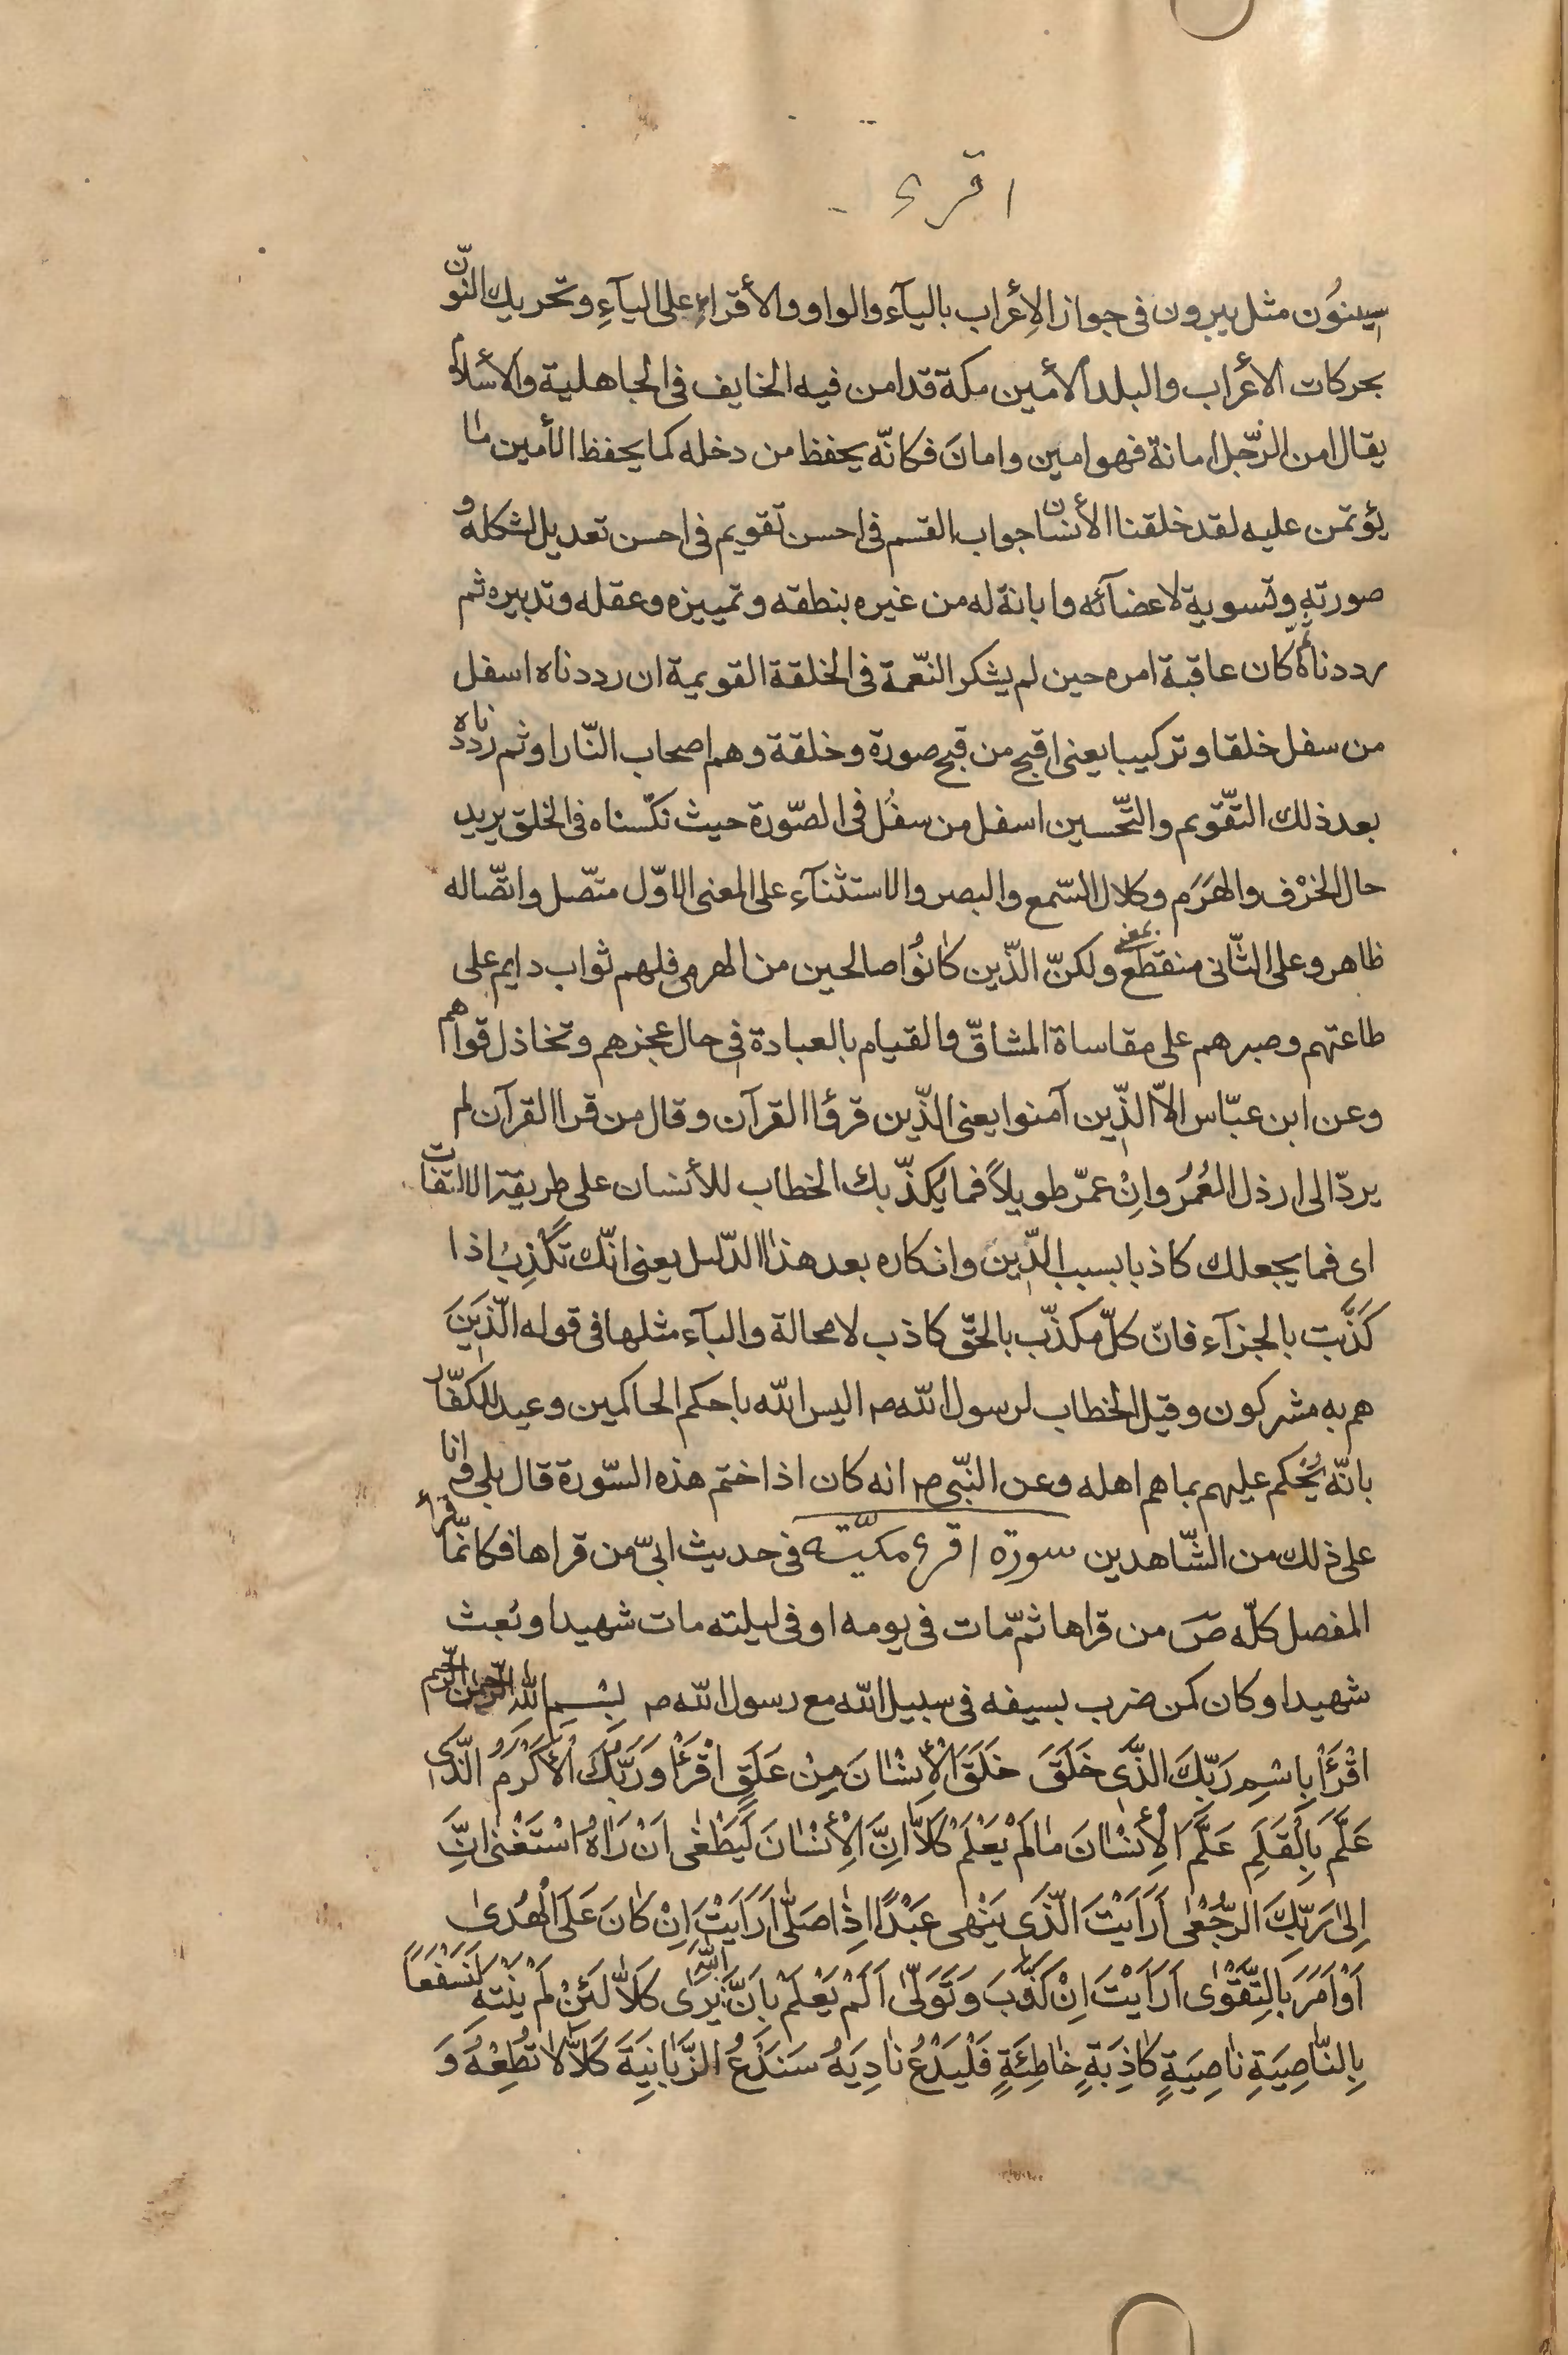 اقرء
سينوُن مثل يبرون فى جواز الإعراب باليآء والواو والأقراء على اليآءِ وتحريك النّون
بحركات الأعراب والبلد الأمين مكة قد امن فيه الخايف فى الجاهلية والأسلام
يقال امن الرّجل امانة فهو امين وامانَ فكانّه يحفظ من دخله كما يحفظ الأمين ما
يؤتمن عليه لقد خلقنا الأنسان جواب القسم فى احسن تقويم فى احسن تعديل لشكله و
صورتهِ وتسوية لاعضآئه وابانة له من غيره بنطقه وتمييزه وعقله وتدبيره ثم
رددناه أى كان عاقبة امره حين لم يشكر النّعمة فى الخلقة القويمية ان رددناه اسفل
من سفل خلقا وتركيبا يعنى اقبح من قبح صورة وخلقة وهم اصحاب النّار او ثم رددناه
بعد ذلك التّقويم والتّحسين اسفل من سفُل فى الصّورة حيث نكّسناه فى الخلق يريد
حال الخرْف والهَرَم وكلال السّمع والبصر والاستثنآءِ على المعنى الاوّل متّصل واتّصاله
ظاهر وعلى الثّانى منقطع بمعنى ولكنّ الّذين كانوُا صالحين من الهرمى فلهم ثواب دايم على
طاعتهم وصبرهم على مقاساة المشاقّ والقيام بالعبادة فى حال عجزهم وتخاذل قواهم
وعن ابن عبّاس الاّ الّذين آمنوا يعنى الّذين قرؤا القرآن وقال من قرا القرآن لم
يردّ الى ارذل العُمُر وانْ عمّر طويلاً فما يكذّبك الخطاب للأنسان على طريقة الالتفات
اى فما يجعلك كاذبا بسبب الدّين وانكاره بعد هذا الدّليل يعنى انّك تكْذِبُ اذا
كَذَّبت بالجزآء فانّ كلّ مكذّب بالحقّ كاذب لا محالة والبآء مثلها فى قوله الّذين
هم به مشركون وقيل الخطاب لرسول اللّه ص اليس اللّه باحكم الحاكمين وعيد للكفّار
بانّه يَحْكم عليهم بما هم اهله وعن النّبى ص انه كان اذا ختم هذه السّورة قال بلى وانا
على ذلك من الشّاهدين سورة اقرء مكيّته فى حديث ابىّ من قراها فكانّما قرأ
المفصل كلّه صَ من قراها ثمّ مات فى يومه او فى ليلته مات شهيدا وبُعث
شهيدا وكان كمن ضرب بسيفه فى سبيل اللّه مع رسول اللّه ص بِسْمِ اللّٰهِ الرّحمٰن الرّحيم
اقْرَأْ بِاسْمِ رَبِّكَ الَّذى خَلَقَ خَلَقَ الْأِنْسٰانَ مِنْ عَلَقٍ اقْرَأْ وَرَبُّكَ الْأَكْرَمُ الَّذى
عَلَّمَ بِالْقَلَمِ عَلَّمَ الْأِنْسٰانَ مٰا لَمْ يَعْلَمْ كَلاّٰ اِنَّ الْأِنْسٰانَ لَيَطْغٰى اَنْ رَاٰهُ اسْتَغْنٰى انَّ
اِلىٰ رَبِّكَ الرُّجْعٰى اَرَاَيْتَ الَّذى يَنْهٰى عَبْدًا اِذٰا صَلّٰى اَرَاَيْتَ اِنْ كٰانَ عَلَى الْهُدىٰ
اَوْ اَمَرَ بِالتَّقْوٰى اَرَاَيْتَ اِنْ كَذَّبَ وَتَوَلّىٰ اَلَمْ يَعْلَمْ بِاَنَّ اللّٰهَ يَرٰى كَلاّٰ لَئِنْ لَمْ يَنْتَهِ لَنَسْفَعاً
بِالنّٰاصِيَةِ نٰاصِيَةٍ كٰاذِبَةٍ خٰاطِئَةٍ فَلْيَدْعُ نٰادِيَهُ سَنَدْعُ الزَّبٰانِيَةَ كَلاّٰ لاٰ تُطِعْهُ وَ